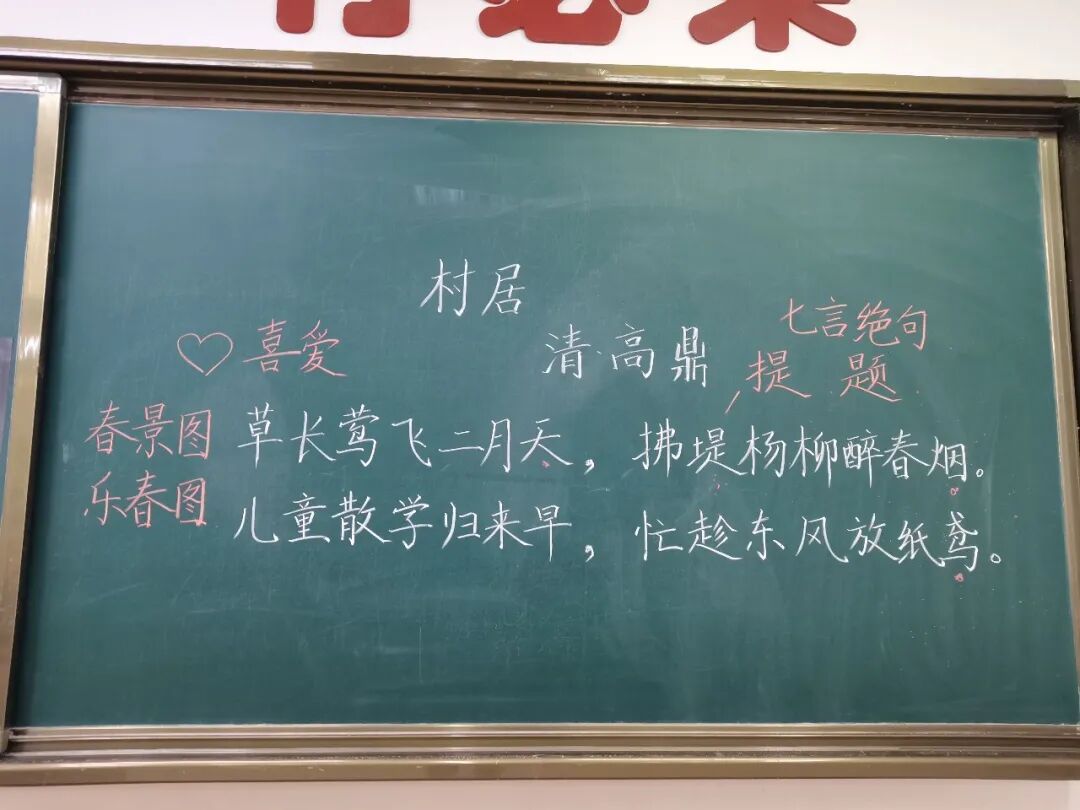 行必果
村居
七言绝句
♡喜爱
清·高鼎
提 题
春景图
草长莺飞二月天，拂堤杨柳醉春烟。
乐春图
儿童散学归来早，忙趁东风放纸鸢。